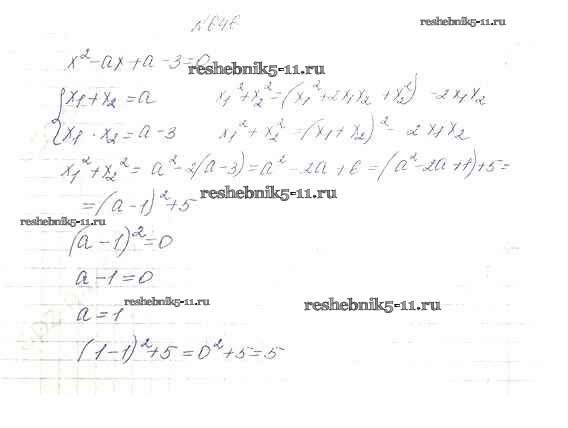 №646
reshebnik5-11.ru
x²-ax+a-3=0
reshebnik5-11.ru
{x₁+x₂=a x₁²+x₂²=(x₁²+2x₁x₂+x₂²)-2x₁x₂
x₁·x₂=a-3 x₁²+x₂²=(x₁+x₂)²-2x₁x₂
x₁²+x₂²=a²-2(a-3)=a²-2a+6=(a²-2a+1)+5=
reshebnik5-11.ru
=(a-1)²+5
reshebnik5-11.ru
(a-1)²=0
a-1=0
reshebnik5-11.ru
reshebnik5-11.ru
a=1
(1-1)²+5=0²+5=5